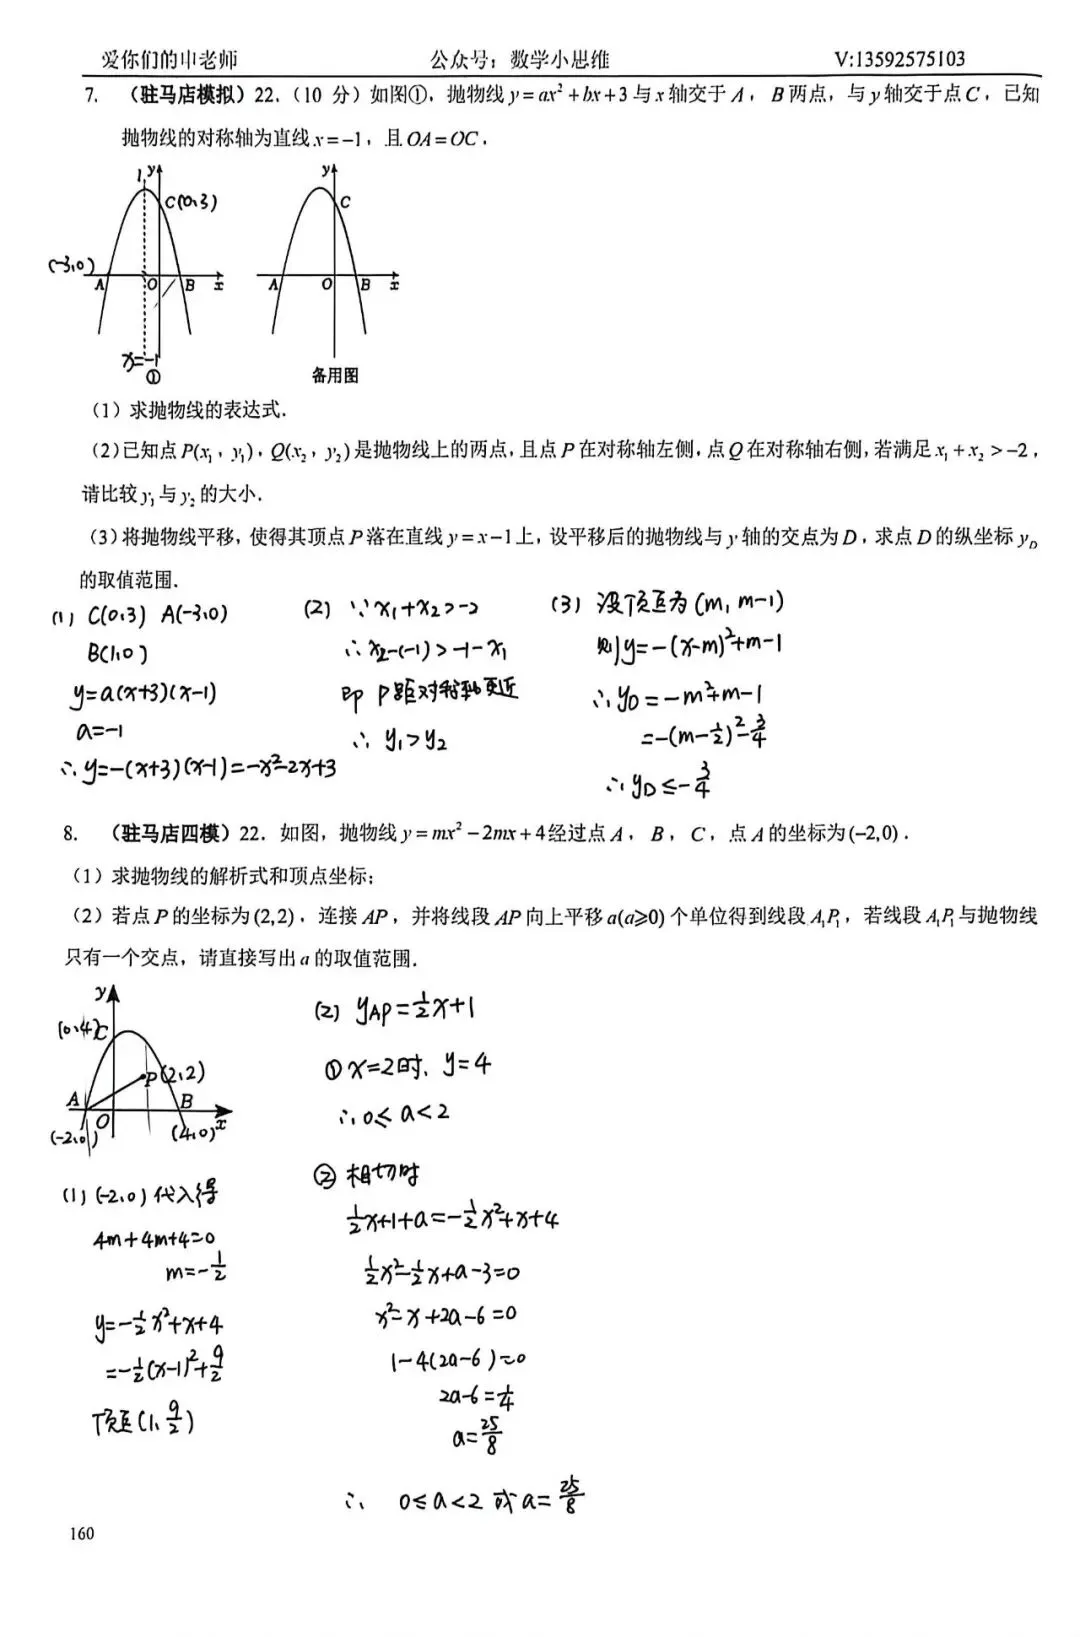 爱你们的申老师 公众号：数学小思维 V:13592575103
7. （驻马店模拟）22.（10 分）如图①，抛物线 y=ax²+bx+3 与 x 轴交于 A，B 两点，与 y 轴交于点 C，已知
抛物线的对称轴为直线 x=-1，且 OA=OC．
y
C(0,3)
(-3,0)
A O B x
x=-1
①
y
C
A O B x
备用图
（1）求抛物线的表达式．
（2）已知点 P(x₁，y₁)，Q(x₂，y₂) 是抛物线上的两点，且点 P 在对称轴左侧，点 Q 在对称轴右侧，若满足 x₁+x₂>-2，
请比较 y₁ 与 y₂ 的大小．
（3）将抛物线平移，使得其顶点 P 落在直线 y=x-1 上，设平移后的抛物线与 y 轴的交点为 D，求点 D 的纵坐标 y_D
的取值范围．
(1) C(0,3) A(-3,0)
B(1,0)
y=a(x+3)(x-1)
a=-1
∴ y=-(x+3)(x-1)=-x²-2x+3
(2) ∵ x₁+x₂>-2
∴ x₂-(-1)>-1-x₁
即 P距对称轴更近
∴ y₁>y₂
(3) 设顶点为 (m, m-1)
则 y=-(x-m)²+m-1
∴ y_D=-m²+m-1
=-(m-½)²-¾
∴ y_D≤-¾
8. （驻马店四模）22．如图，抛物线 y=mx²-2mx+4 经过点 A，B，C，点 A 的坐标为(-2,0)．
（1）求抛物线的解析式和顶点坐标；
（2）若点 P 的坐标为 (2,2)，连接 AP，并将线段 AP 向上平移 a(a≥0) 个单位得到线段 A₁P₁，若线段 A₁P₁ 与抛物线
只有一个交点，请直接写出 a 的取值范围．
y
(0,4) C
P(2,2)
A B
O x
(-2,0) (4,0)
(1) (-2,0) 代入得
4m+4m+4=0
m=-½
y=-½x²+x+4
=-½(x-1)²+9/2
顶点(1, 9/2)
(2) y_AP=½x+1
① x=2时, y=4
∴ 0≤a<2
② 相切时
½x+1+a=-½x²+x+4
½x²-½x+a-3=0
x²-x+2a-6=0
1-4(2a-6)=0
2a-6=¼
a=25/8
∴ 0≤a<2 或 a=25/8
160